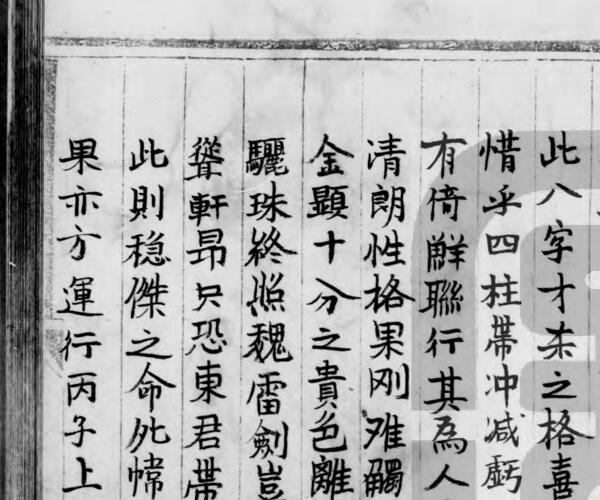 此八字才杀之格喜
惜乎四柱帶冲减虧
有倚鮮聯行其為人
清朗性格果刚难觸
金顯十分之貴色離
驪珠終照魏雷劍豈
聳軒昂只恐東君帶
此則稳傑之命
果亦方運行丙子上